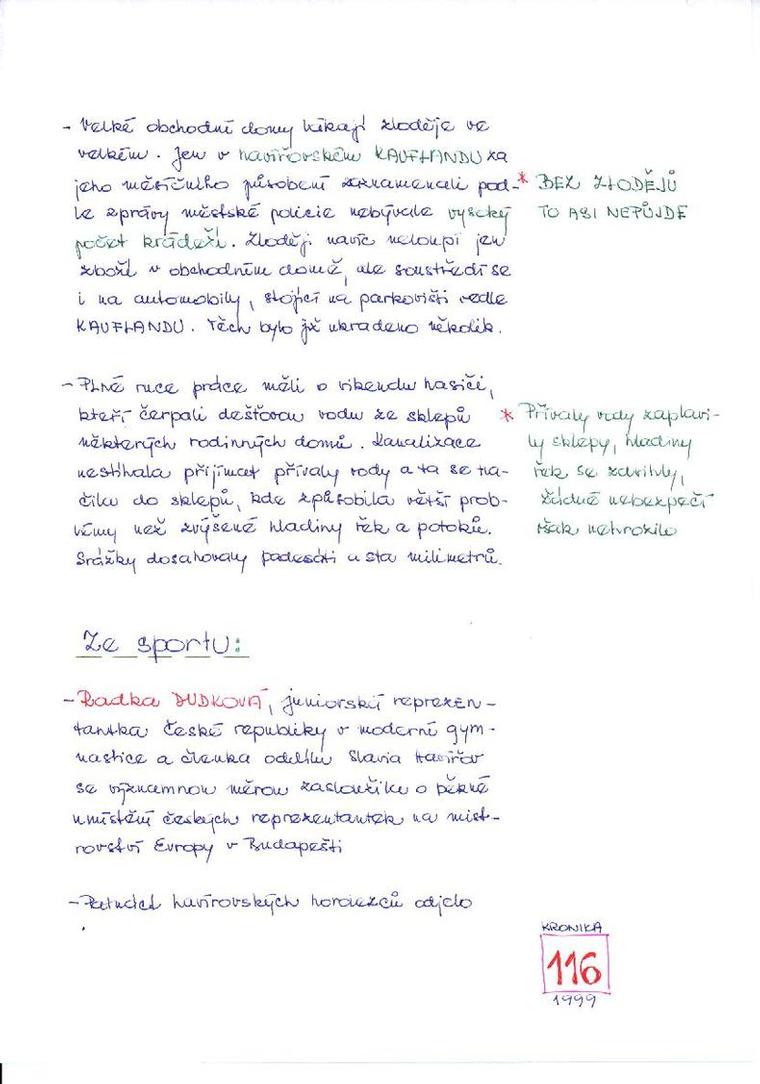 - Velké obchodní domy lákají zloděje ve
velkém. Jen v havířovském KAUFLANDU za
jeho měsíčního působení zaznamenali pod-
le zprávy městské policie nebývale vysoký
počet krádeží. Zloději navíc neloupí jen
zboží v obchodním domě, ale soustředí se
i na automobily, stojící na parkovišti vedle
KAUFLANDU. Těch bylo již ukradeno několik.
* BEZ ZLODĚJŮ
TO ASI NEPŮJDE
- Plné ruce práce měli o víkendu hasiči,
kteří čerpali dešťovou vodu ze sklepů
některých rodinných domů. Kanalizace
nestíhala přijímat přívaly vody a ta se tla-
čila do sklepů, kde způsobila větší prob-
lémy než zvýšené hladiny řek a potoků.
Srážky dosahovaly padesáti a sta milimetrů.
* Přívaly vody zaplavi-
ly sklepy, hladiny
řek se zdvihly,
žádné nebezpečí
však nehrozilo
Ze sportu:
- Radka DUDKOVÁ, juniorská reprezen-
tantka České republiky v moderní gym-
nastice a členka oddílu Slavia Havířov
se významnou měrou zasloužila o pěkné
umístění českých reprezentantek na mist-
rovství Evropy v Budapešti
- Patnáct havířovských horolezců odjelo
KRONIKA
116
1999